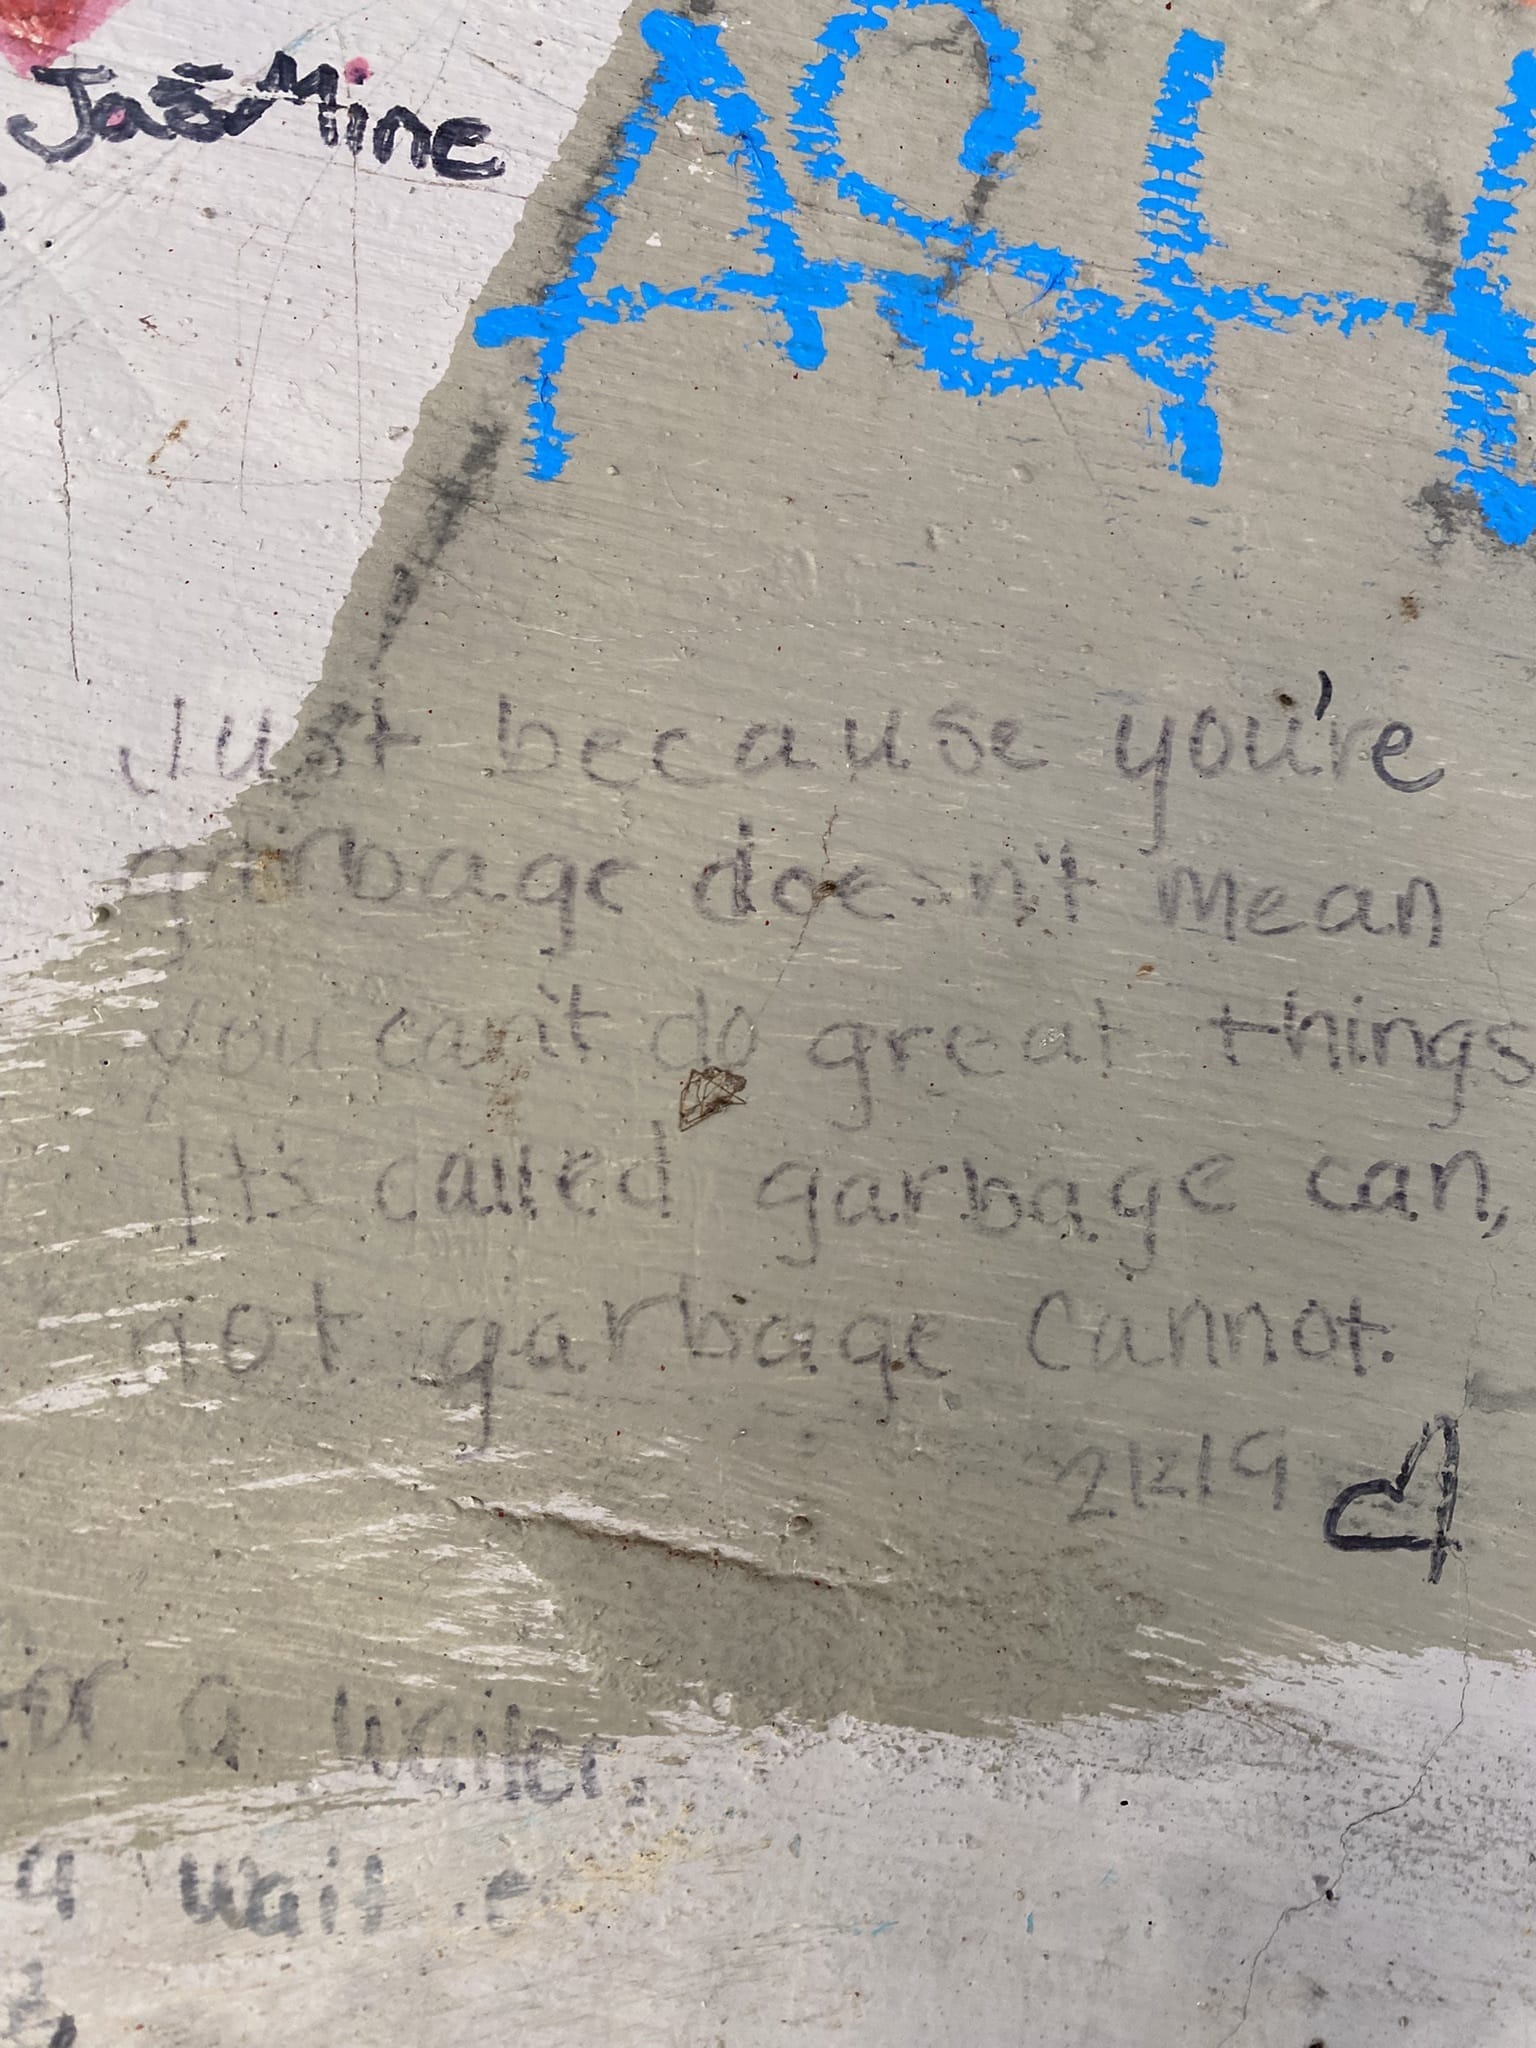 JasMine
Just because you're
garbage doesn't mean
you can't do great things
It's called garbage can,
not garbage cannot.
a waiter,
wait